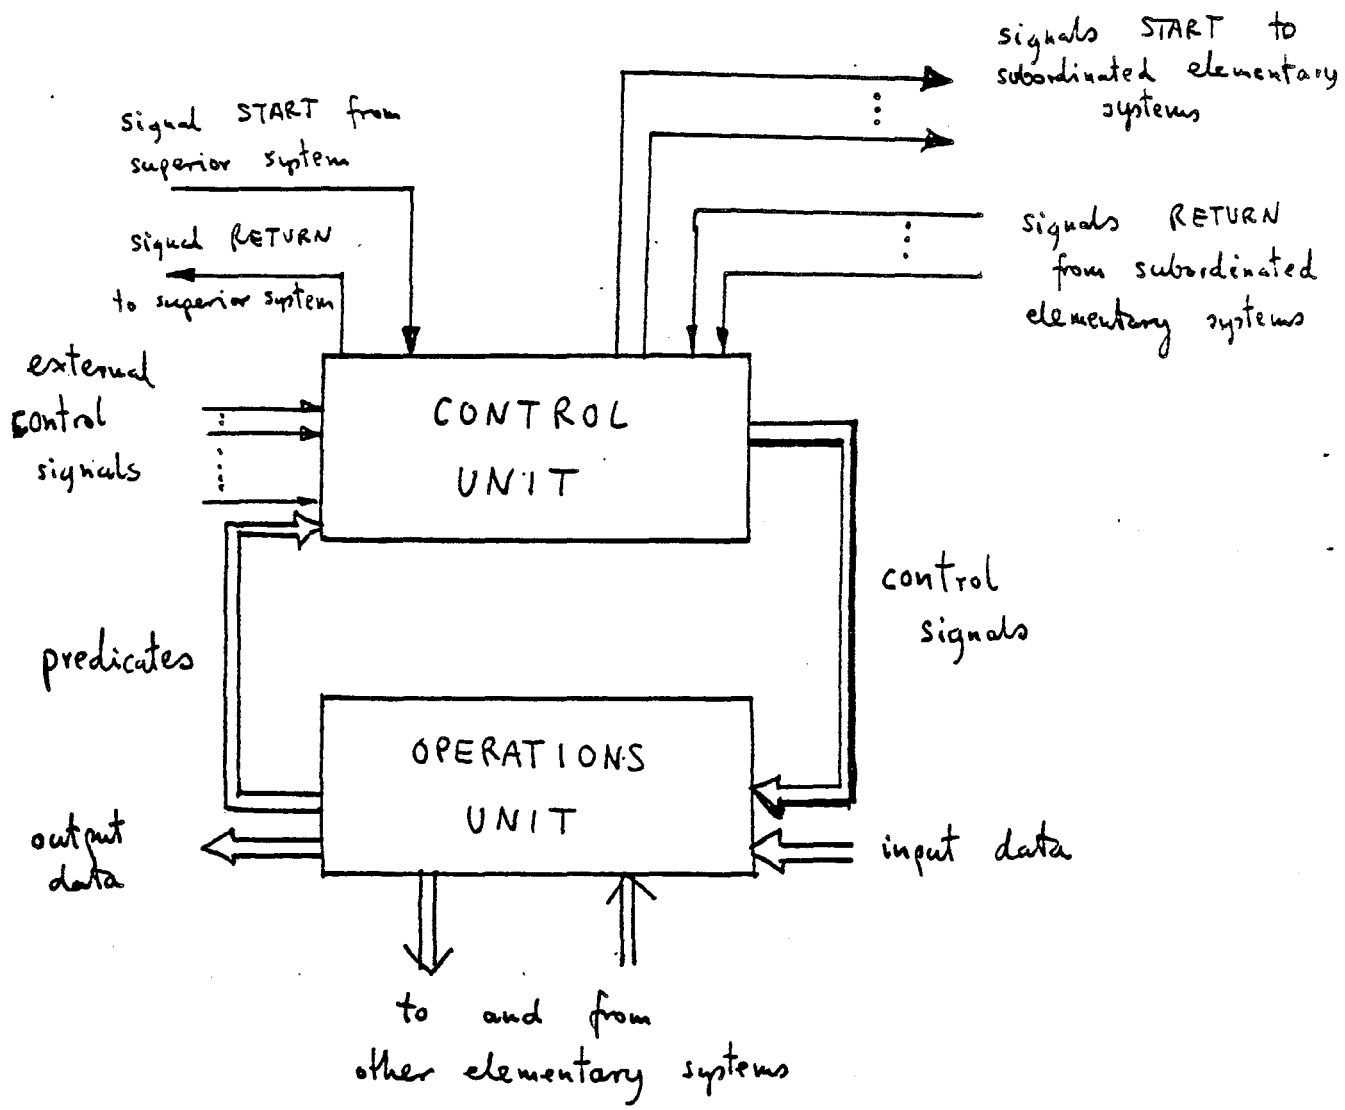 signals START to
subordinated elementary
systems
signal START from
superior system
signal RETURN
to superior system
signals RETURN
from subordinated
elementary systems
external
control
signals
CONTROL
UNIT
control
signals
predicates
OPERATIONS
UNIT
output
data
input data
to and from
other elementary systems